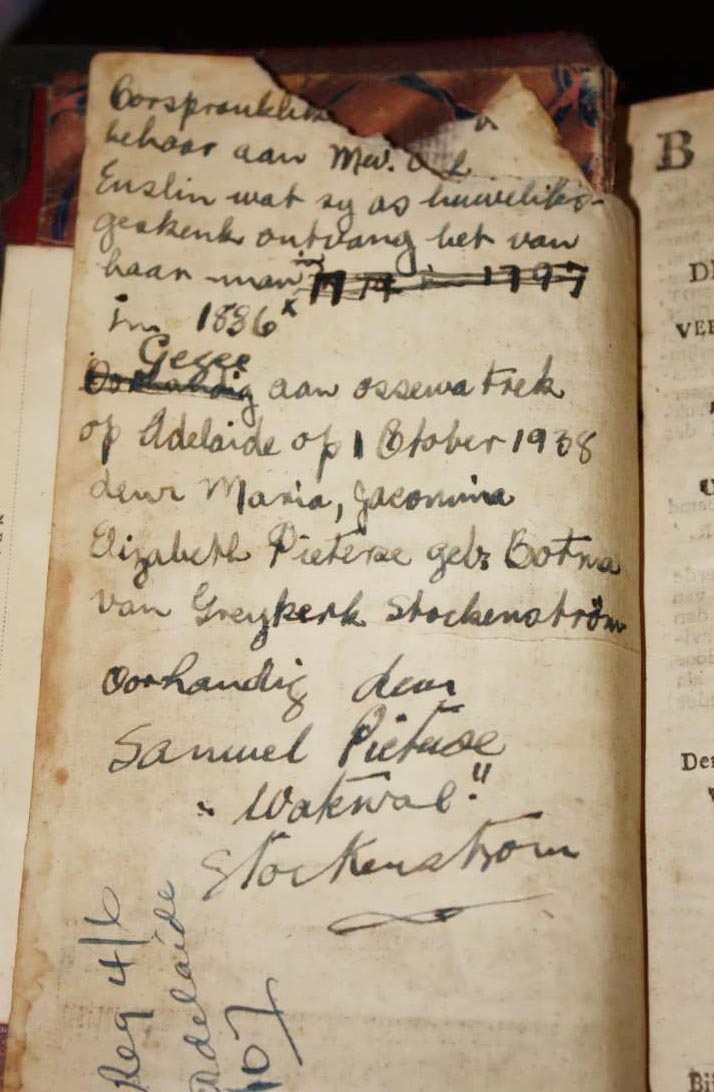 Oorspronklik
behoor aan Mev.
Enslin wat sy as huweliks-
geskenk ontvang het van
haar man
in 1836 x
Gegee
Oorhandig aan ossewa trek
op Adelaide op 1 Otober 1938
deur Maria, Jacomina
Elizabeth Pieterse geb: Botma
van Greykerk Stockenström
oorhandig deur
Samuel Pieterse
"Wakwal"
Stockenstrom
Reg 4/6
Adelaide
107
B
VEE
Der